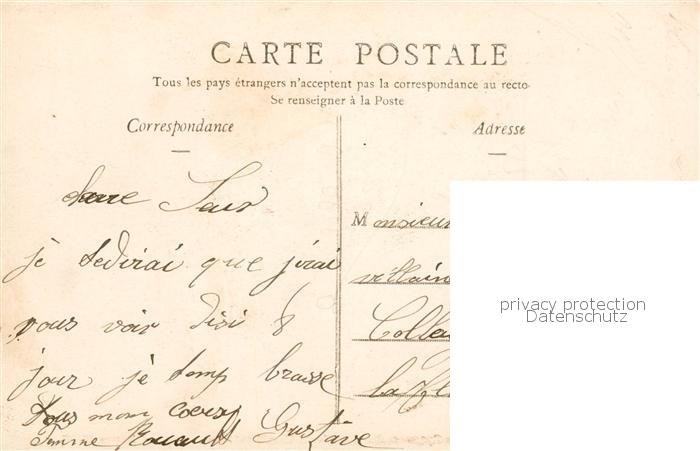 CARTE POSTALE
Tous les pays étrangers n'acceptent pas la correspondance au recto
Se renseigner à la Poste
Correspondance
Adresse
Seur
je tedirai que jirai
vous voir disi 8
jour je temp brasse
Tous mon coeur
Gustave
Monsieur
villain
privacy protection
Datenschutz